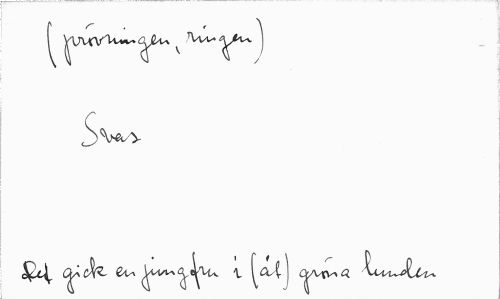 (prövningen, ringen)
Svas
Det gick en jungfru i (åt) gröna lunden